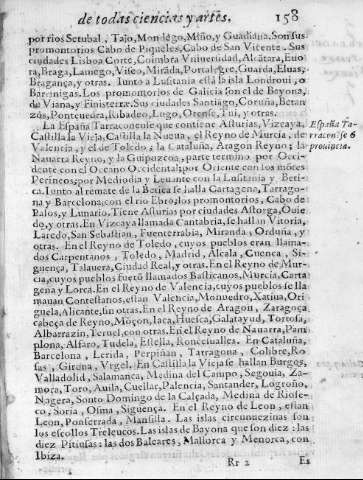 de todas ciencias y artes. 158
por rios Setubal, Tajo, Mondego, Miño, y Guadiana. Son sus
promontorios Cabo de Piqueles, Cabo de San Vicente. Sus
ciudades Lisboa Corte, Coimbra Vniuersidad, Alcãtara, Euo
ra, Braga, Lamego, Viseo, Mirãda, Portalegre, Guarda, Eluas,
Bragança, y otras. Iunto a Lusitania està la isla Londroni, o
Barenigas. Los promontorios de Galicia son el de Bayona,
de Viana, y Finisterræ. Sus ciudades Santiago, Coruña, Betan
zòs, Ponteuedra, Ribadeo, Lugo, Orense, Tui, y otras.
La España Tarraconense que contiene Asturias, Vizcaya,
Castilla la Vieja, Castilla la Nueua, el Reyno de Murcia, de
Valencia, y el de Toledo; la Cataluña, Aragon Reyno; la
Nauarra Reyno, y la Guipuzcoa, parte termino por Occi-
dente con el Oceano Occidental; por Oriente con los mõtes
Perineos; por Mediodia y Leuante con la Lusitania y Beti-
ca. Iunto al remate de la Betica se halla Cartagena, Tarrago-
na y Barcelona, con el rio Ebro; los promontorios, Cabo de
Palos, y Lunario. Tiene Asturias por ciudades Astorga, Ouie-
do, y otras. En Vizcaya llamada Cantabria, se hallan Vitoria,
Laredo, San Sebastian, Fuenterrabia, Miranda, Orduña, y
otras. En el Reyno de Toledo, cuyos pueblos eran llama-
dos Carpentanos, Toledo, Madrid, Alcala, Cuenca, Si-
guença, Talauera, Ciudad Real, y otras. En el Reyno de Mur-
cia, cuyos pueblos fuerõ llamados Bastitanos, Murcia, Carta
gena y Lorca. En el Reyno de Valencia, cuyos pueblos se lla
mauan Contestanos, estan Valencia, Monuedro, Xatiua, Ori-
guela, Alicante, sin otras. En el Reyno de Aragon, Zaragoça
cabeça de Reyno, Mõçon, Iaca, Huesca, Calatayud, Tortosa,
Albarrazin, Teruel, con otras. En el Reyno de Nauarra, Pam
plona, Alfaro, Tudela, Estella, Roncesualles. En Cataluña,
Barcelona, Lerida, Perpiñan, Tarragona, Colibre, Ro-
sas, Girona, Vrgel. En Castilla la Vieja se hallan Burgos,
Valladolid, Salamanca, Medina del Campo, Segouia, Za-
mora, Toro, Auila, Cuellar, Palencia, Santander, Logroño,
Nagera, Santo Domingo de la Calçada, Medina de Riose-
co, Soria, Osma, Siguença. En el Reyno de Leon, estan
Leon, Ponferrada, Mansilla. Las islas circunuezinas son
los escollos Treleucos. Las islas de Bayona que son diez: las
diez Pitiusas: las dos Baleares, Mallorca y Menorca, con
Ibiza.
Rr 2 Es
España Ta-
rraconẽse ò
prouincia.